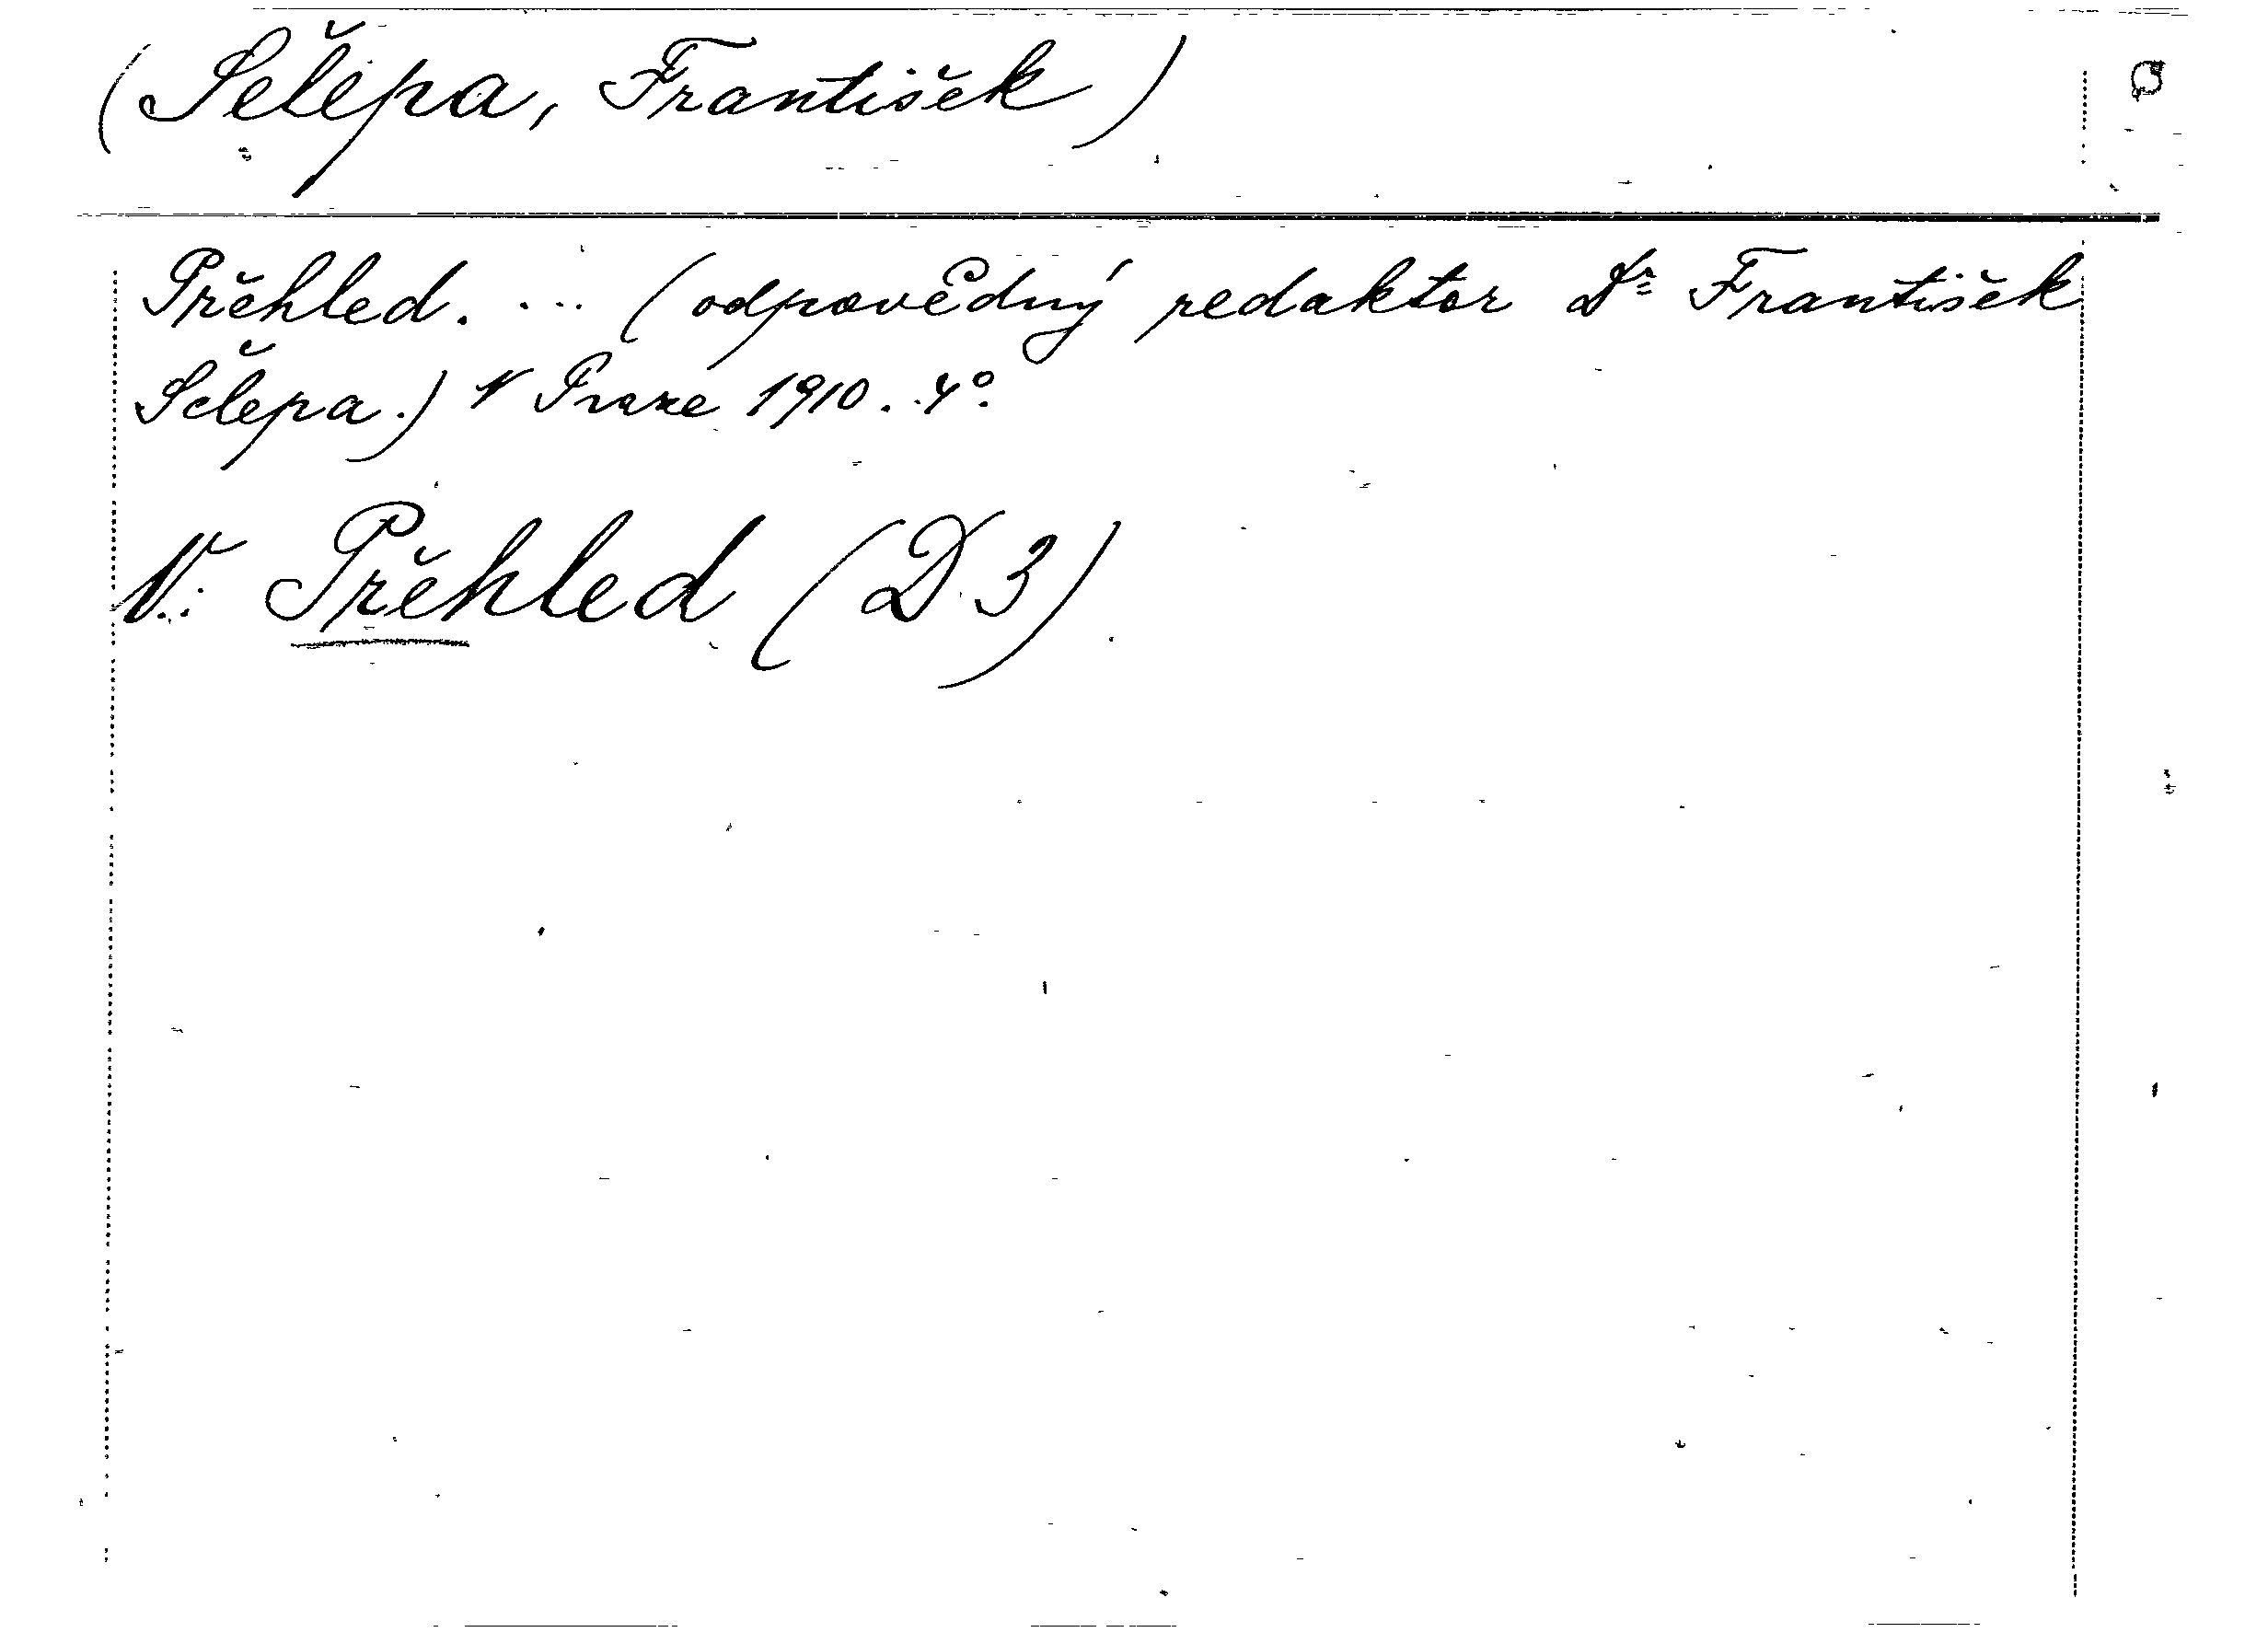 (Šelepa, František)
Přehled. ... (odpovědný redaktor Dr František
Šelepa.) V Praze 1910. 4°.
V.: Přehled (D 3)